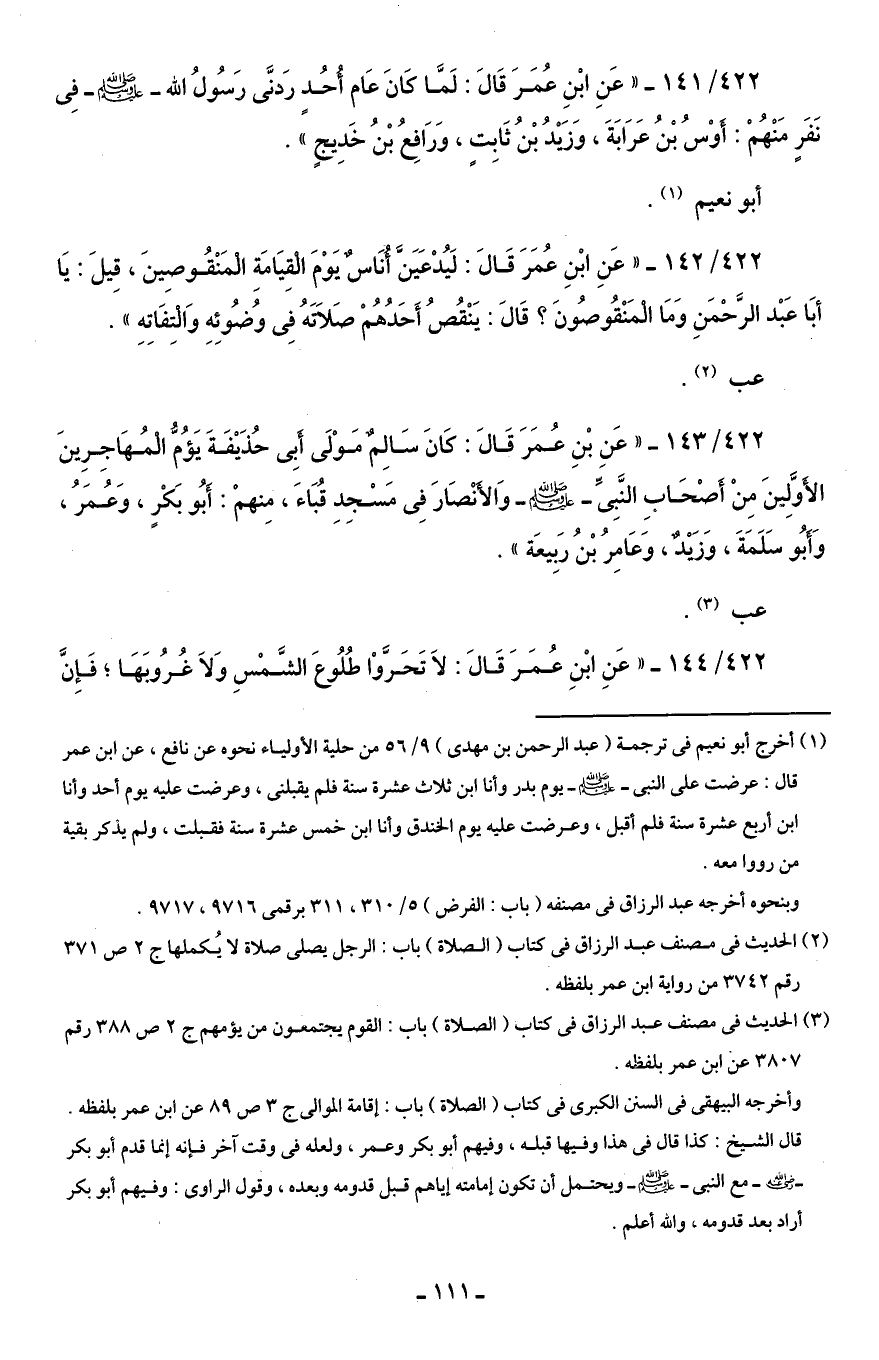 ١٤١/٤٢٢ ـ « عَنِ ابْنِ عُمَرَ قَالَ : لَمَّا كَانَ عَام أُحُدٍ رَدَنَّى رَسُولُ الله ـ ﷺ ـ فِى
نَفَرٍ مَنْهُمْ : أَوْسُ بْنُ عَرَابَةَ ، وَزَيْدُ بْنُ ثَابِتٍ ، وَرَافِعُ بْنُ خَدِيجٍ » .
أبو نعيم (١) .
١٤٢/٤٢٢ ـ « عَنِ ابْنِ عُمَرَ قَالَ : لَيُدْعَيَنَّ أُنَاسٌ يَوْمَ الْقِيَامَةِ الْمَنْقُوصِينَ ، قِيلَ : يَا
أبَا عَبْد الرَّحْمَنِ وَمَا الْمَنْقُوصُونَ ؟ قَالَ : يَنْقُصُ أَحَدُهُمْ صَلَاَتَهُ فِى وضُوئِهِ وَالْتِفَاتِهِ » .
عب (٢) .
١٤٣/٤٢٢ ـ « عَنِ بْنِ عُمَرَ قَالَ : كَانَ سَالِمٌ مَوْلَى أَبِى حُذَيْفَةَ يَؤُمُّ الْمُهَاجِرِينَ
الأَوَّلِينَ مِنْ أَصْحَابِ النَّبِىِّ ـ ﷺ ـ وَالأَنْصَارَ فِى مَسْجِدِ قُبَاءَ ، مِنهمْ : أَبُو بَكْرٍ ، وَعُمَرُ ،
وَأَبُو سَلَمَةَ ، وَزَيْدٌ ، وَعَامِرُ بْنُ رَبِيعَة » .
عب (٣) .
١٤٤/٤٢٢ ـ « عَنِ ابْنِ عُمَرَ قَالَ : لاَ تَحَرَّوْا طُلُوعَ الشَّمْسِ وَلاَ غُرُوبَهَا ؛ فَإِنَّ
(١) أخرج أبو نعيم فى ترجمة ( عبد الرحمن بن مهدى ) ٩/ ٥٦ من حلية الأولياء نحوه عن نافع ، عن ابن عمر
قال : عرضت على النبى ـ ﷺ ـ يوم بدر وأنا ابن ثلاث عشرة سنة فلم يقبلنى ، وعرضت عليه يوم أحد وأنا
ابن أربع عشرة سنة فلم أقبل ، وعرضت عليه يوم الخندق وأنا ابن خمس عشرة سنة فقبلت ، ولم يذكر بقية
من رووا معه .
وبنحوه أخرجه عبد الرزاق فى مصنفه ( باب : الفرض ) ٥/ ٣١٠ ، ٣١١ برقمى ٩٧١٦ ، ٩٧١٧ .
(٢) الحديث فى مصنف عبد الرزاق فى كتاب ( الصلاة ) باب : الرجل يصلى صلاة لا يُكملها ج ٢ ص ٣٧١
رقم ٣٧٤٢ من رواية ابن عمر بلفظه .
(٣) الحديث فى مصنف عبد الرزاق فى كتاب ( الصلاة ) باب : القوم يجتمعون من يؤمهم ج ٢ ص ٣٨٨ رقم
٣٨٠٧ عن ابن عمر بلفظه .
وأخرجه البيهقى فى السنن الكبرى فى كتاب ( الصلاة ) باب : إقامة الموالى ج ٣ ص ٨٩ عن ابن عمر بلفظه .
قال الشيخ : كذا قال فى هذا وفيها قبله ، وفيهم أبو بكر وعمر ، ولعله فى وقت آخر فإنه إنما قدم أبو بكر
ـ رضي الله عنه ـ مع النبى ـ ﷺ ـ ويحتمل أن تكون إمامته إياهم قبل قدومه وبعده ، وقول الراوى : وفيهم أبو بكر
أراد بعد قدومه ، والله أعلم .
ـ ١١١ ـ